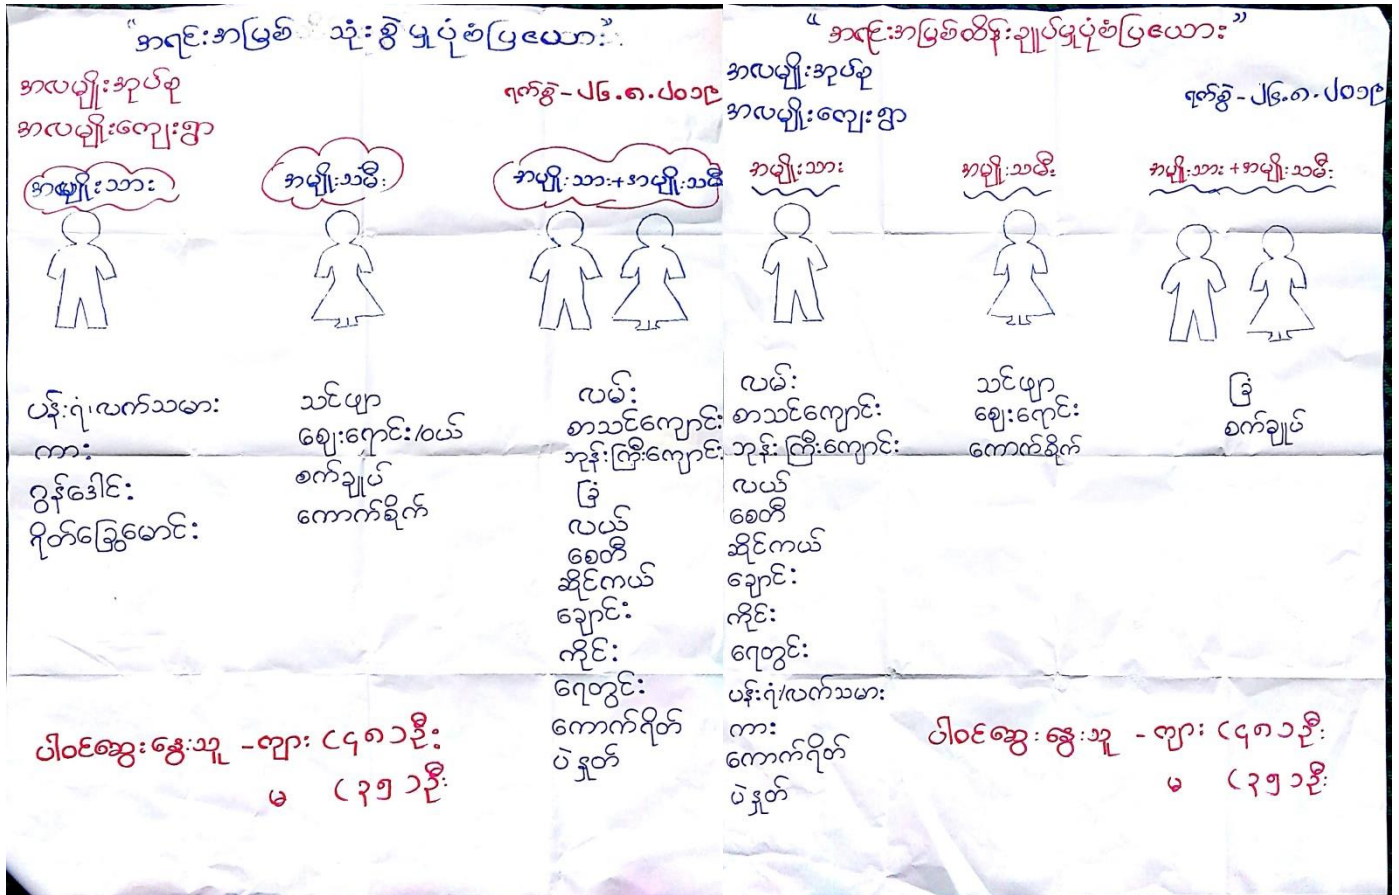 "အရင်းအမြစ် သုံးစွဲမှုပုံစံပြဇယား"
အလမျိုးအုပ်စု
ရက်စွဲ - ၂၆.၈.၂၀၁၉
အလမျိုးကျေးရွာ
အမျိုးသား
အမျိုးသမီး
အမျိုးသား+အမျိုးသမီး
ပန်းရံ၊လက်သမား
ကား
ဂွန်ဒေါင်း
ရိတ်ခြွေမောင်း
သင်ဖျာ
ဈေးရောင်း/ဝယ်
စက်ချုပ်
ကောက်စိုက်
လမ်း
စာသင်ကျောင်း
ဘုန်းကြီးကျောင်း
ခြံ
လယ်
စေတီ
ဆိုင်ကယ်
ချောင်း
ကိုင်း
ရေတွင်း
ကောက်ရိတ်
ပဲနှုတ်
ပါဝင်ဆွေးနွေးသူ - ကျား (၄၈)ဦး
မ (၃၅)ဦး
"အရင်းအမြစ်ထိန်းချုပ်မှုပုံစံပြဇယား"
အလမျိုးအုပ်စု
ရက်စွဲ - ၂၆.၈.၂၀၁၉
အလမျိုးကျေးရွာ
အမျိုးသား
အမျိုးသမီး
အမျိုးသား +အမျိုးသမီး
လမ်း
စာသင်ကျောင်း
ဘုန်းကြီးကျောင်း
လယ်
စေတီ
ဆိုင်ကယ်
ချောင်း
ကိုင်း
ရေတွင်း
ပန်းရံ/လက်သမား
ကား
ကောက်ရိတ်
ပဲနှုတ်
သင်ဖျာ
ဈေးရောင်း
ကောက်စိုက်
ခြံ
စက်ချုပ်
ပါဝင်ဆွေးနွေးသူ - ကျား (၄၈)ဦး
မ (၃၅)ဦး